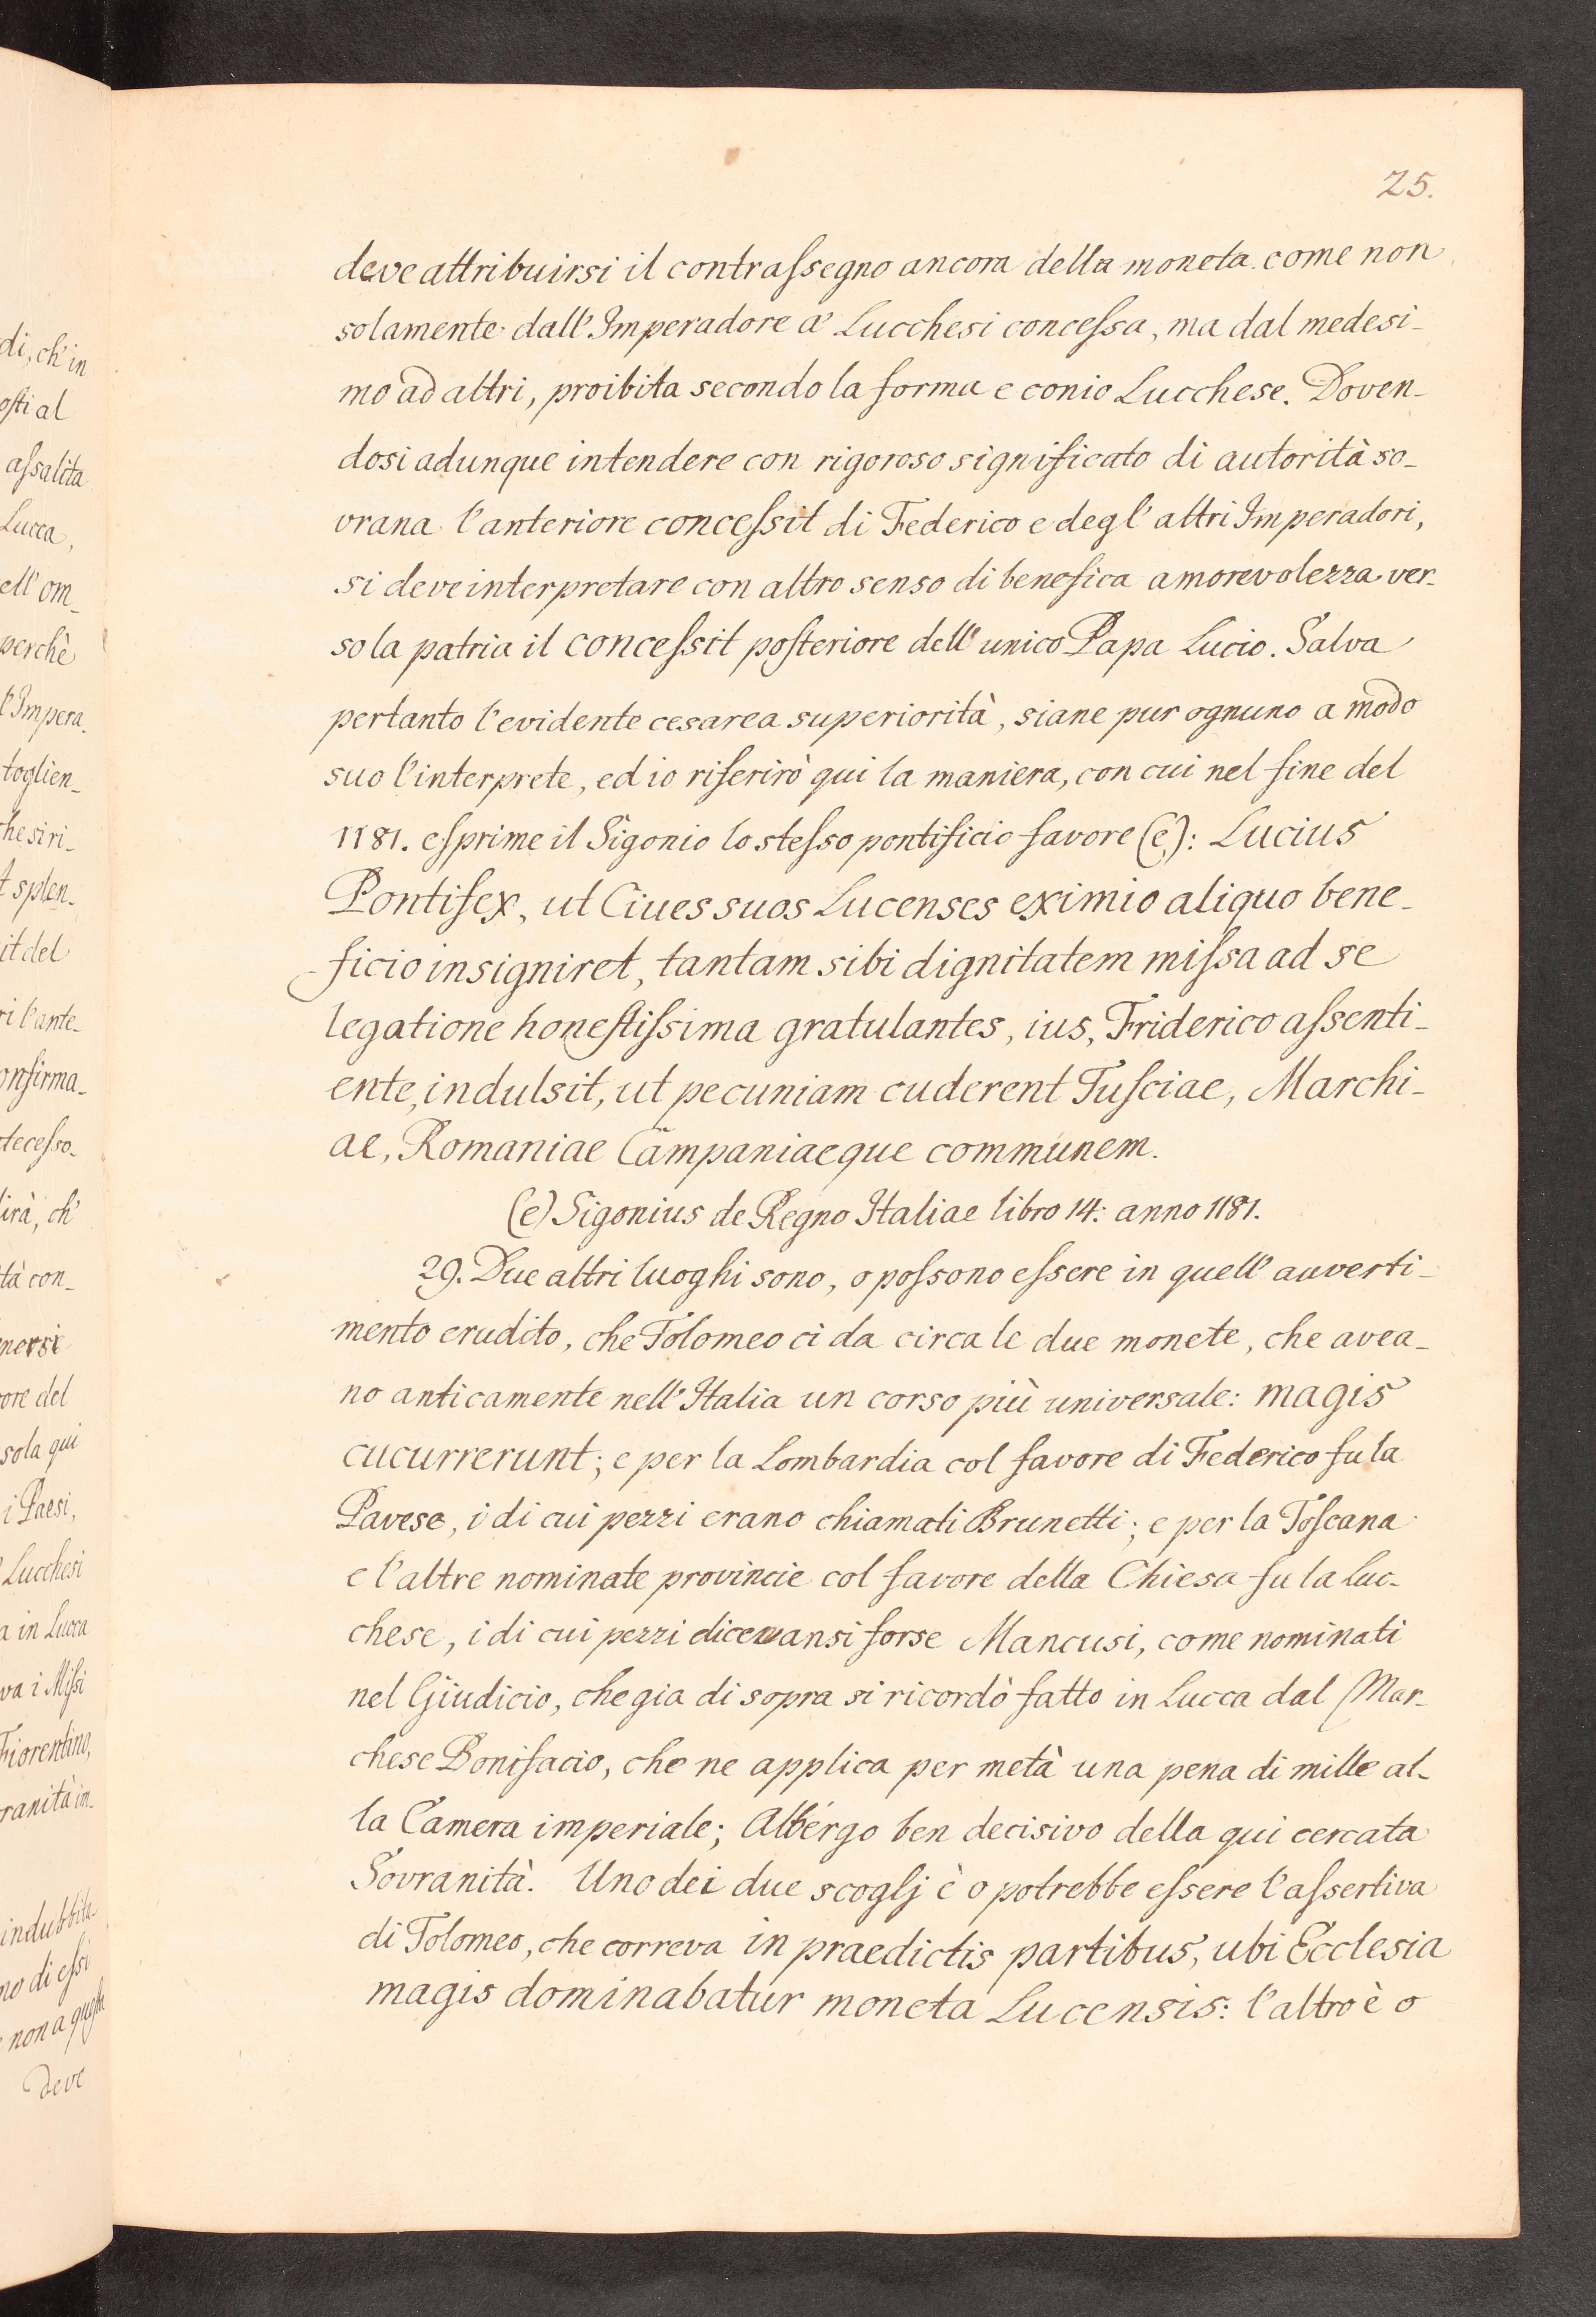 25.
deve attribuirsi il contrassegno ancora della moneta come non
solamente dall'Imperadore a' Lucchesi concessa, ma dal medesi-
mo ad altri, proibita secondo la forma e conio Lucchese. Doven-
dosi adunque intendere con rigoroso significato di autorità so-
vrana l'anteriore concessit di Federico e degl'altri Imperadori,
si deve interpretare con altro senso di benefica amorevolezza ver-
so la patria il concessit posteriore dell'unico Papa Lucio. Salva
pertanto l'evidente cesarea superiorità, siane pur ognuno a modo
suo l'interprete, ed io riferirò qui la maniera, con cui nel fine del
1181. esprime il Sigonio lo stesso pontificio favore (e): Lucius
Pontifex, ut Ciues suos Lucenses eximio aliquo bene-
ficio insigniret, tantam sibi dignitatem missa ad se
legatione honestissima gratulantes, ius, Friderico assenti-
ente, indulsit, ut pecuniam cuderent Tusciae, Marchi-
ae, Romaniae Campaniaeque communem.
(e) Sigonius de Regno Italiae libro 14: anno 1181.
29. Due altri luoghi sono, o possono essere in quell'auverti-
mento erudito, che Tolomeo ci da circa le due monete, che avea-
no anticamente nell'Italia un corso più universale: magis
cucurrerunt; e per la Lombardia col favore di Federico fu la
Pavese, i di cui pezzi erano chiamati Brunetti; e per la Toscana
e l'altre nominate provincie col favore della Chiesa fu la Luc-
chese, i di cui pezzi dicevansi forse Mancusi, come nominati
nel Giudicio, che gia di sopra si ricordò fatto in Lucca dal Mar-
chese Bonifacio, che ne applica per metà una pena di mille al-
la Camera imperiale; Albérgo ben decisivo della qui cercata
Sovranità. Uno dei due scoglj è o potrebbe essere l'assertiva
di Tolomeo, che correva in praedictis partibus, ubi Ecclesia
magis dominabatur moneta Lucensis: l'altro è o
di, ch'in
osti al
assalita
Lucca,
ell'om-
perchè
l'Impera-
toglien-
che si ri-
t splen-
it del
ri l'ante-
onfirma-
tecesso-
irà, ch'
tà con-
nersi
ore del
sola qui
i Paesi,
Lucchesi
a in Lucca
va i Missi
Fiorentino,
ranità im-
indubbita-
no di essi
non a questa
deve